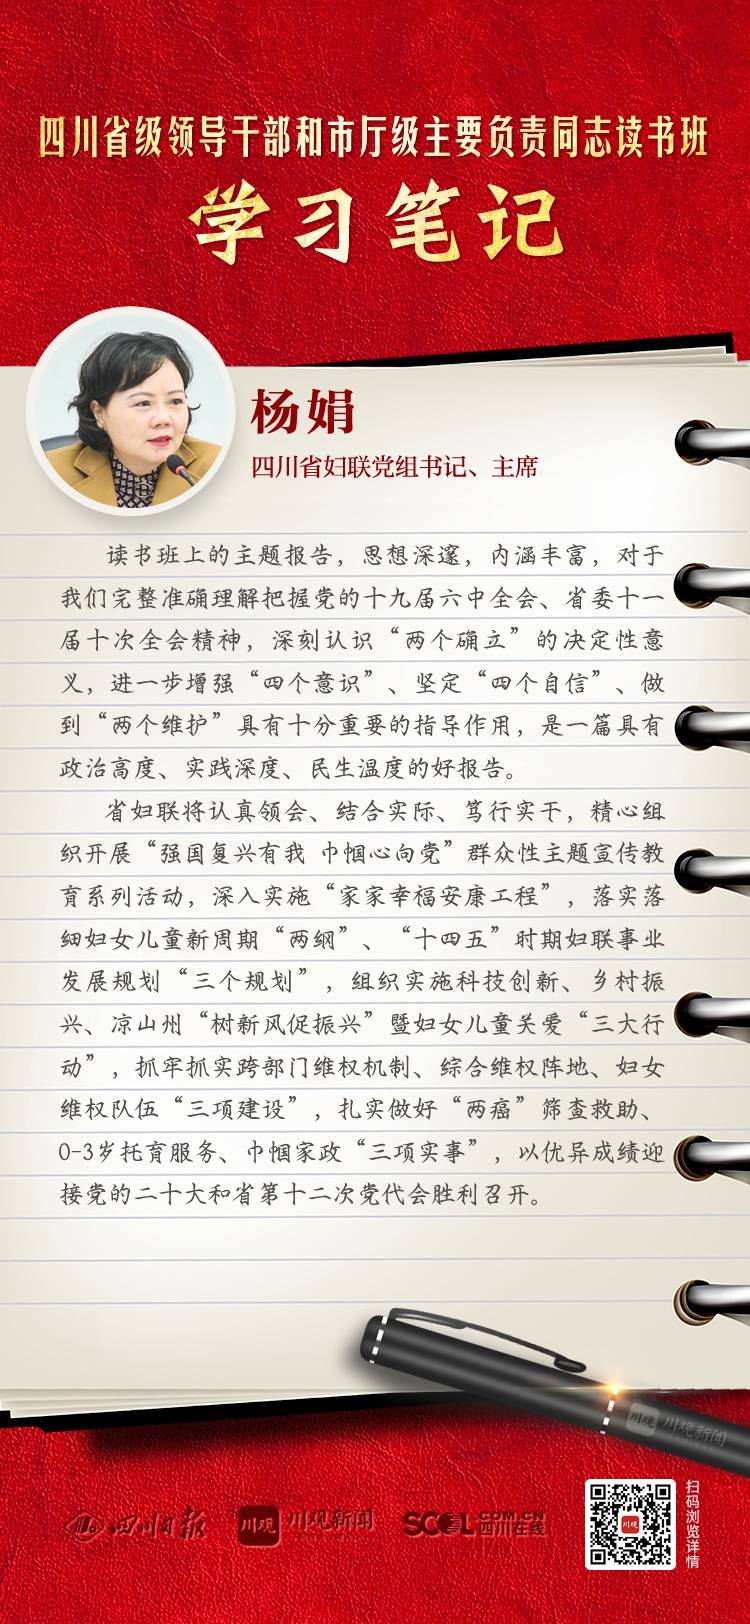 四川省级领导干部和市厅级主要负责同志读书班
学习笔记
杨娟
四川省妇联党组书记、主席
读书班上的主题报告，思想深邃，内涵丰富，对于
我们完整准确理解把握党的十九届六中全会、省委十一
届十次全会精神，深刻认识“两个确立”的决定性意
义，进一步增强“四个意识”、坚定“四个自信”、做
到“两个维护”具有十分重要的指导作用，是一篇具有
政治高度、实践深度、民生温度的好报告。
省妇联将认真领会、结合实际、笃行实干，精心组
织开展“强国复兴有我 巾帼心向党”群众性主题宣传教
育系列活动，深入实施“家家幸福安康工程”，落实落
细妇女儿童新周期“两纲”、“十四五”时期妇联事业
发展规划“三个规划”，组织实施科技创新、乡村振
兴、凉山州“树新风促振兴”暨妇女儿童关爱“三大行
动”，抓牢抓实跨部门维权机制、综合维权阵地、妇女
维权队伍“三项建设”，扎实做好“两癌”筛查救助、
0-3岁托育服务、巾帼家政“三项实事”，以优异成绩迎
接党的二十大和省第十二次党代会胜利召开。
川观 川观新闻
四川日报
川观 川观新闻
SCOL.COM.CN
四川在线
川观
扫码浏览详情